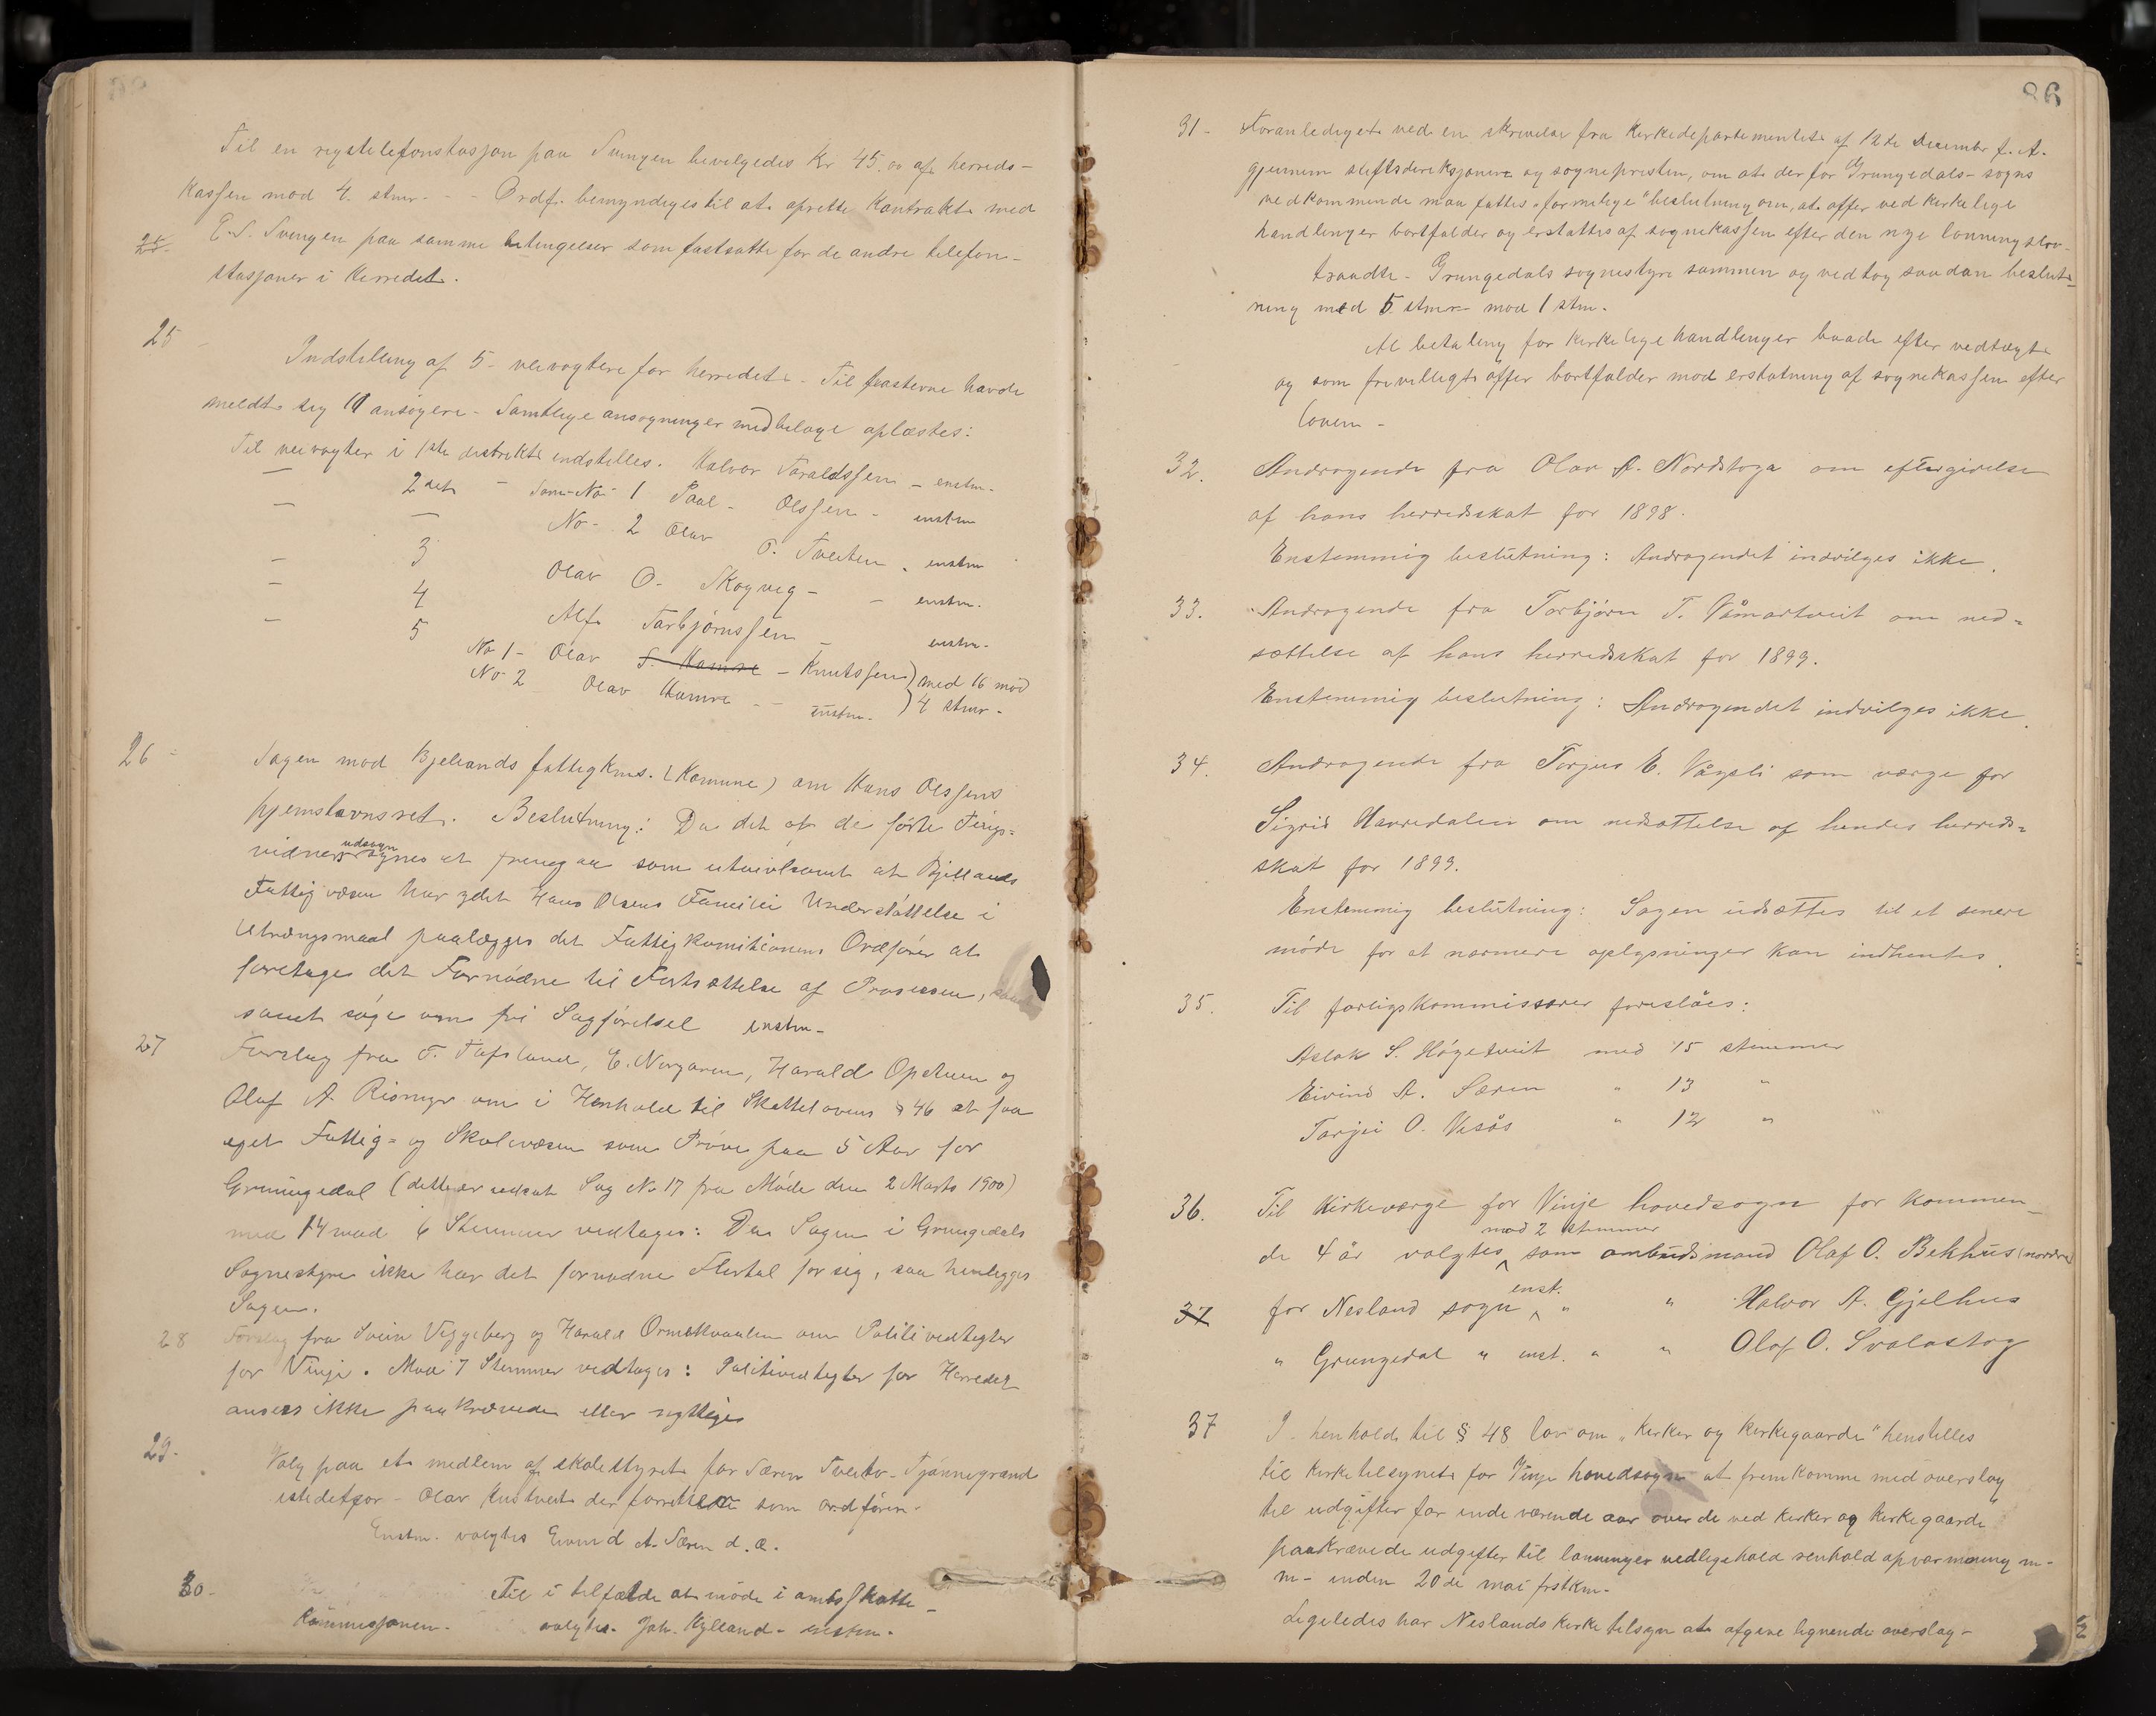 Til en rigstelefonstasjon paa Svingen bevilgedes Kr 45.00 af herreds-
kassen mod 4. stmr. - - Ordf. bemyndiges til at oprette Kontrakt med
25 E. S. Svingen paa samme betingelser som fastsatte for de andre telefon-
stasjoner i Herredet.
25 -
Indstilling af 5 - veivogtere for herredet. - Til posterne havde
meldt sig 10 ansøgere - Samtlige ansøgninger med bilage oplæstes:
Til veivogter i 1ste distrikt indstilles. Halvor Taraldssen - enstm.
— 2det - Som No- 1 Paal - Olssen - enstm
— — No- 2 Olav T. Tveiten . enstm
— 3 Olav O. Skogveg - - enstm.
— 4 Alf Tarbjørnssen - enstm.
— 5 No 1 - Olav S. Hamre - Knutssen } med 16 mod
No 2 Olav Hamre - - enstm. } 4 stmr -
26 - Sagen mod Bjellands fattigkms. (Komune) om Hans Olssens
hjemstavnsret. Beslutning: Da det af de førte Tings=
vidners udsagn synes at fremgaa som utvivlsomt at Bjellands
Fattigvæsen har ydet Hans Olsens Familie Understøttelse i
Utrængsmaal paalægges det Fattigkomitionens Ordfører at
foretage det Fornødne til Fortsættelse af Prosessen,
samt søge om fri Sagførelsel enstm -
27 Forslag fra T. Tafsland, E. Norgaren, Harald Opstuen og
Olaf A Rismyr om i Henhold til Skattelovens § 46 at faa
eget Fattig= og Skolevæsen som Prøve paa 5 Aar for
Grungedal (dette er udsat Sag No 17 fra Møde den 2 Marts 1900)
med 14 mod 6 Stemmer vedtages: Da Sagen i Grungedals
Sognestyre ikke har det fornødne Flertal for sig, saa henlegges
Sagen.
28 Forslag fra Svein Veggeberg og Harald Ormekvaalen om Politivedtegter
for Vinje. Mod 7 Stemmer vedtages: Politivedtegter for Herredet
ansees ikke paakrævede eller nyttige
29. Valg paa et medlem af skolestyret for Særen Tveito - Tjønnegrend
istedetfor - Olav Kustveit der forretter som ordfører.
Enstm. valgtes Eivind A. Særen d. æ.
30. Til i tilfælde at møde i amtsskatte -
kommissjonen. valgtes. Joh. Kylland - enstm.
86
31 - Foranlediget ved en skrivelse fra Kirkedepartementet af 12te December f. A.
gjennem stiftsdireksjonen og sognepresten, om at der for Grungedals - sogns
vedkommende maa fattes "formelige" beslutning om, at offer ved kirkelige
handlinger bortfalder og erstattes af sognekassen efter den nye lønningslov -
traadte - Grungedals sognestyre sammen og vedtog saadan beslut=
ning med 5 stmr - mod 1 stm.
Al betaling for kirkelige handlinger baade efter vedtægt
og som frivilligt offer bortfalder mod erstatning af sognekassen efter
loven -
32. Andragende fra Olav A. Nordstoga om eftergivelse
af hans herredsskat for 1898.
Enstemmig beslutning: Andragendet indvilges ikke.
33. Andragende fra Torbjörn T. Våmartveit om ned=
sættelse af hans herredsskat for 1899.
Enstemmig beslutning: Andragendet indvilges ikke.
34. Andragende fra Torjus E. Vågsli som værge for
Sigrid Havredalen om nedsættelse af hendes herreds=
skat for 1899.
Enstemmig beslutning: Sagen udsættes til et senere
möde for at nærmere oplysninger kan indhentes.
35. Til forligskommissærer foreslåes:
Aslak S. Högetveit med 15 stemmer
Eivind A. Særen " 13 "
Tarjei O. Vesås " 12 "
36. Til Kirkeværge for Vinje hovedsogn for kommen-
de 4 år valgtes mod 2 stemmer som ombudsmand Olaf O. Bekhus (nordre)
37 for Nesland sogn enst. " " Halvor A. Gjelhus
" Grungedal " enst. " " Olaf O. Svalastog
37 I henhold til § 48 lov om "Kirker og Kirkegaarde" henstilles
til kirketilsynet for Vinje hovedsogn at fremkomme med overslag
til udgifter for indeværende aar over de ved kirker og kirkegaarde
paakrævede udgifter til lønninger vedligehold renhold opvarmning m -
m - inden 20de mai førstkm -
Ligeledes har Neslands kirketilsyn at afgive lignende overslag -